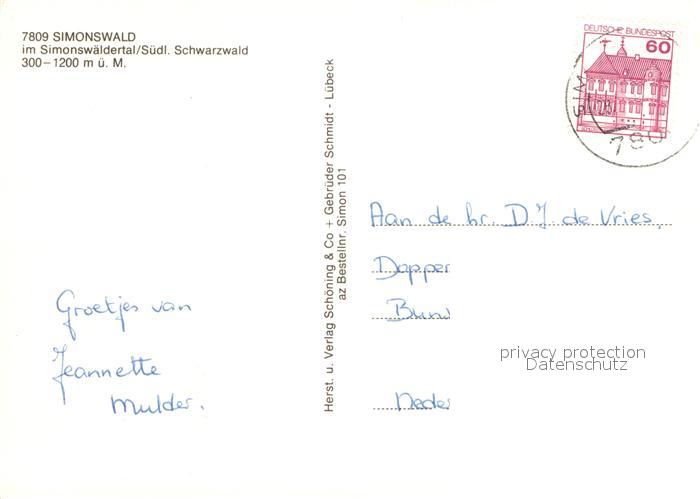 7809 SIMONSWALD
im Simonswäldertal/Südl. Schwarzwald
300–1200 m ü. M.
DEUTSCHE BUNDESPOST
60
Herst. u. Verlag Schöning & Co + Gebrüder Schmidt - Lübeck
az Bestellnr. Simon 101
Aan de hr. D.J. de Vries,
Dapper
Bun
Neder
privacy protection
Datenschutz
Groetjes van
Jeannette
Mulder.